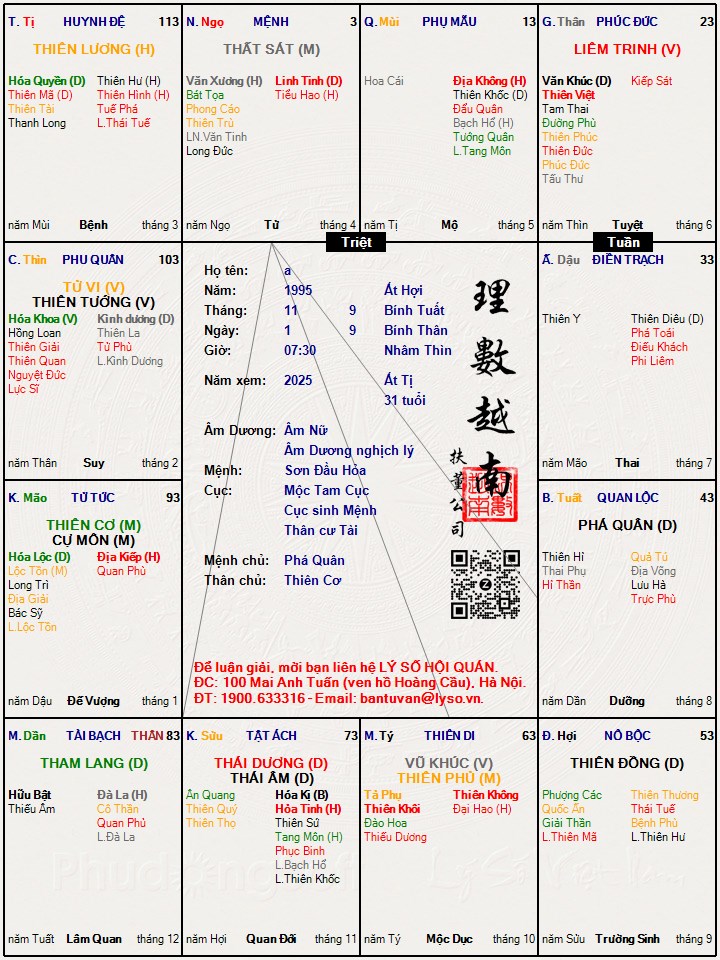 T. Tị HUYNH ĐỆ 113
THIÊN LƯƠNG (H)
Hóa Quyền (D) Thiên Hư (H)
Thiên Mã (D) Thiên Hình (H)
Thiên Tài Tuế Phá
Thanh Long L.Thái Tuế
năm Mùi Bệnh tháng 3
N. Ngọ MỆNH 3
THẤT SÁT (M)
Văn Xương (H) Linh Tinh (D)
Bát Tọa Tiểu Hao (H)
Phong Cáo
Thiên Trù
LN.Văn Tinh
Long Đức
năm Ngọ Tử tháng 4
Q. Mùi PHỤ MẪU 13
Hoa Cái Địa Không (H)
Thiên Khốc (D)
Đẩu Quân
Bạch Hổ (H)
Tướng Quân
L.Tang Môn
năm Tị Mộ tháng 5
G. Thân PHÚC ĐỨC 23
LIÊM TRINH (V)
Văn Khúc (D) Kiếp Sát
Thiên Việt
Tam Thai
Đường Phù
Thiên Phúc
Thiên Đức
Phúc Đức
Tấu Thư
năm Thìn Tuyệt tháng 6
Triệt
Tuần
C. Thìn PHU QUÂN 103
TỬ VI (V)
THIÊN TƯỚNG (V)
Hóa Khoa (V) Kình dương (D)
Hồng Loan Thiên La
Thiên Giải Tử Phù
Thiên Quan L.Kình Dương
Nguyệt Đức
Lực Sĩ
năm Thân Suy tháng 2
Họ tên: a
Năm: 1995 Ất Hợi
Tháng: 11 9 Bính Tuất
Ngày: 1 9 Bính Thân
Giờ: 07:30 Nhâm Thìn
Năm xem: 2025 Ất Tị
31 tuổi
Âm Dương: Âm Nữ
Âm Dương nghịch lý
Mệnh: Sơn Đầu Hỏa
Cục: Mộc Tam Cục
Cục sinh Mệnh
Thân cư Tài
Mệnh chủ: Phá Quân
Thân chủ: Thiên Cơ
理數越南
扶董公司
Để luận giải, mời bạn liên hệ LÝ SỐ HỘI QUÁN.
ĐC: 100 Mai Anh Tuấn (ven hồ Hoàng Cầu), Hà Nội.
ĐT: 1900.633316 - Email: bantuvan@lyso.vn.
Ấ. Dậu ĐIỀN TRẠCH 33
Thiên Y Thiên Diêu (D)
Phá Toái
Điếu Khách
Phi Liêm
năm Mão Thai tháng 7
K. Mão TỬ TỨC 93
THIÊN CƠ (M)
CỰ MÔN (M)
Hóa Lộc (D) Địa Kiếp (H)
Lộc Tồn (M) Quan Phù
Long Trì
Địa Giải
Bác Sỹ
L.Lộc Tồn
năm Dậu Đế Vượng tháng 1
B. Tuất QUAN LỘC 43
PHÁ QUÂN (D)
Thiên Hỉ Quả Tú
Thai Phụ Địa Võng
Hỉ Thần Lưu Hà
Trực Phù
năm Dần Dưỡng tháng 8
M. Dần TÀI BẠCH THÂN 83
THAM LANG (D)
Hữu Bật Đà La (H)
Thiếu Âm Cô Thần
Quan Phủ
L.Đà La
năm Tuất Lâm Quan tháng 12
K. Sửu TẬT ÁCH 73
THÁI DƯƠNG (D)
THÁI ÂM (D)
Ân Quang Hóa Kị (B)
Thiên Quý Hỏa Tinh (H)
Thiên Thọ Thiên Sứ
Tang Môn (H)
Phục Binh
L.Bạch Hổ
L.Thiên Khốc
năm Hợi Quan Đới tháng 11
M. Tý THIÊN DI 63
VŨ KHÚC (V)
THIÊN PHỦ (M)
Tả Phụ Thiên Không
Thiên Khôi Đại Hao (H)
Đào Hoa
Thiếu Dương
năm Tý Mộc Dục tháng 10
Đ. Hợi NÔ BỘC 53
THIÊN ĐỒNG (D)
Phượng Các Thiên Thương
Quốc Ấn Thái Tuế
Giải Thần Bệnh Phù
L.Thiên Mã L.Thiên Hư
năm Sửu Trường Sinh tháng 9